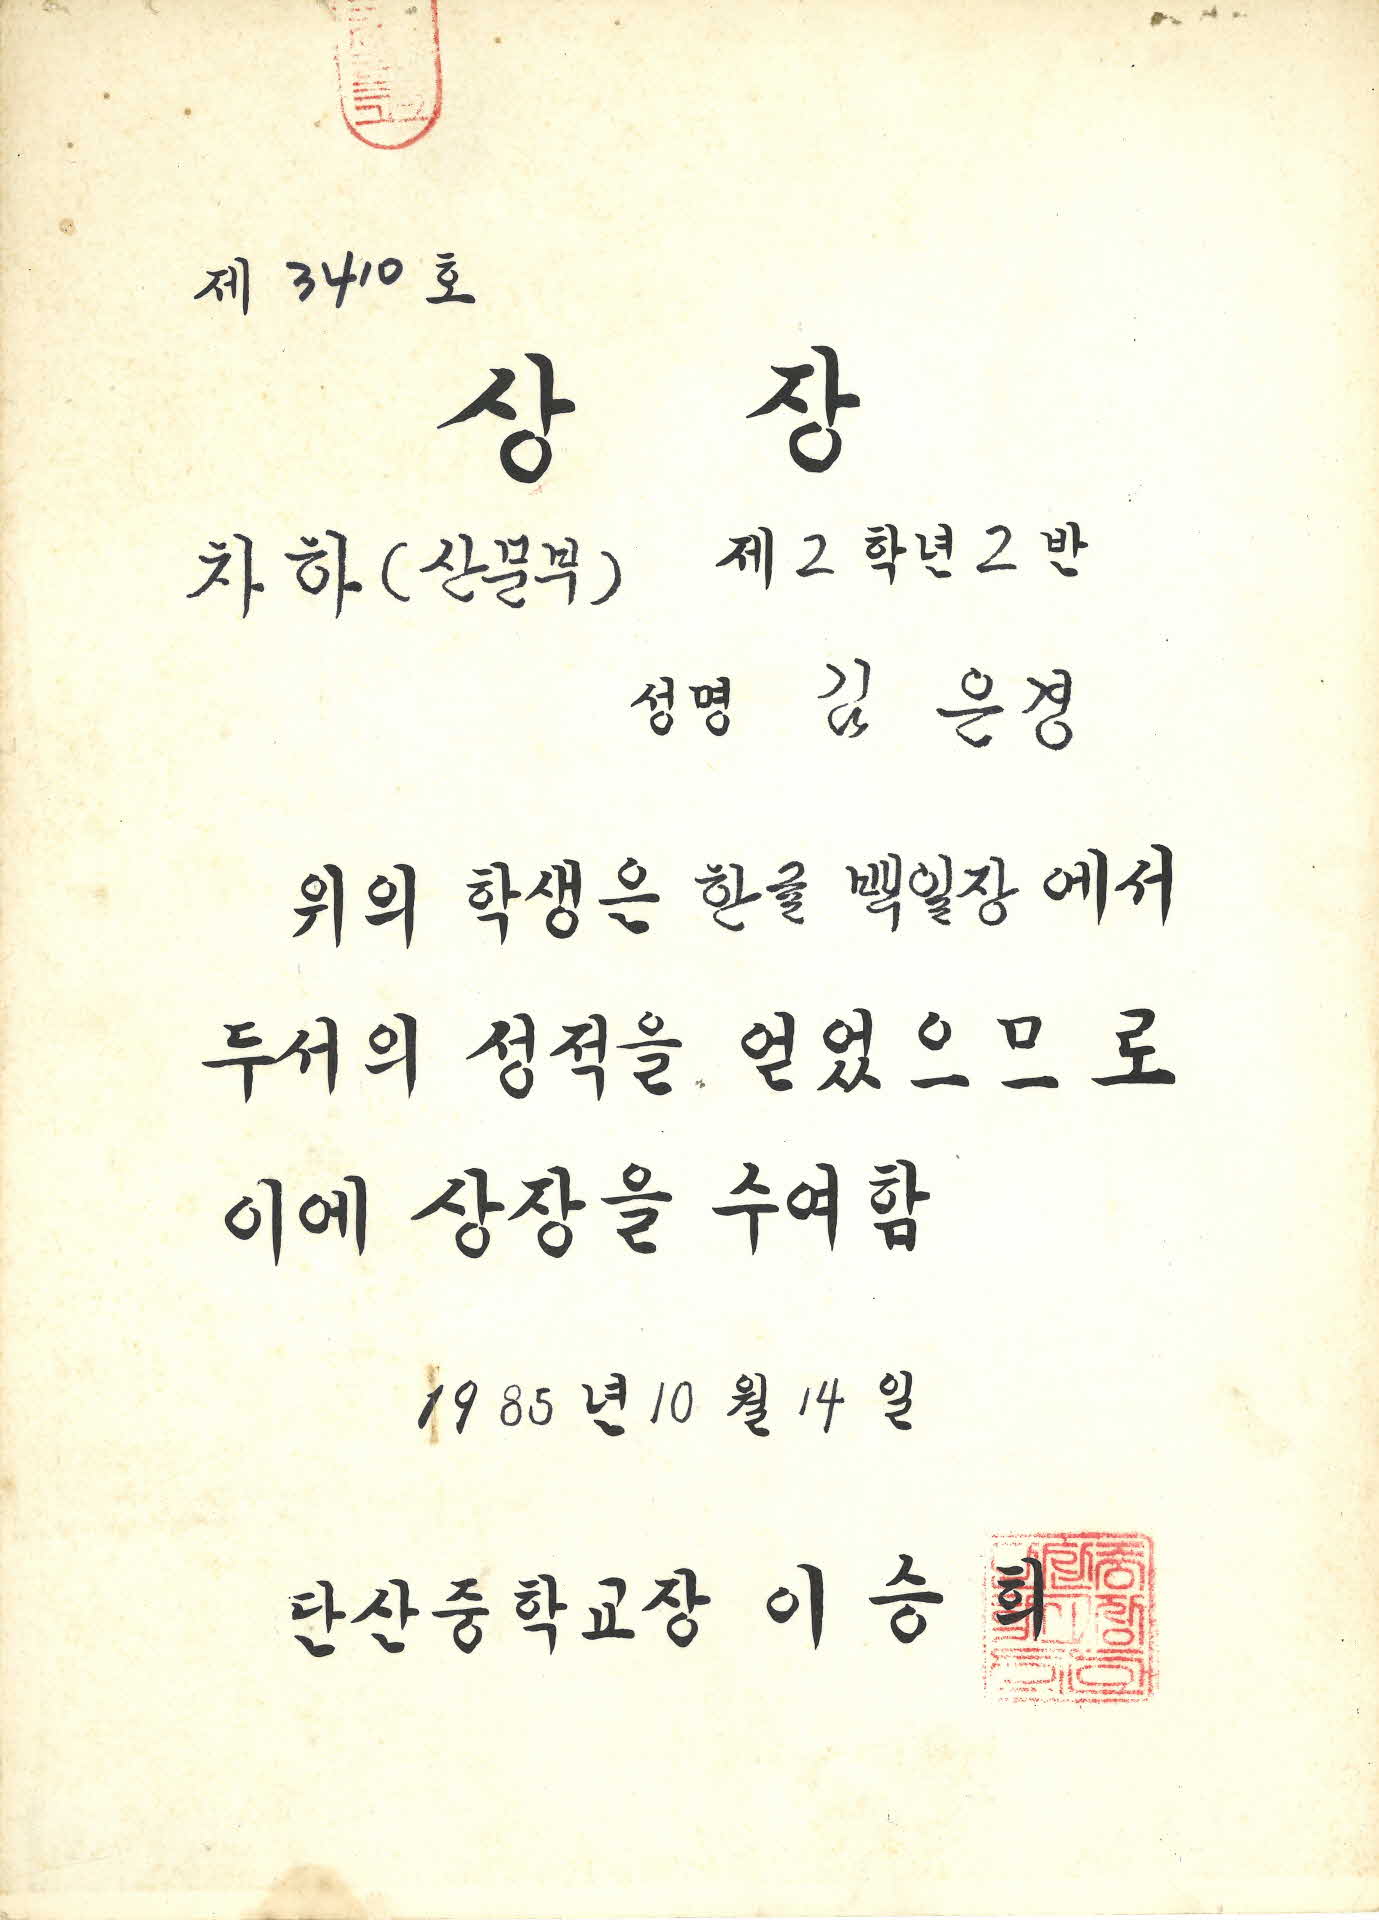 제 3410 호
상 장
차하(산문부) 제2학년2반
성명 김 은경
위의 학생은 한글 백일장에서
두서의 성적을 얻었으므로
이에 상장을 수여함
1985년 10월 14일
단산중학교장 이승희